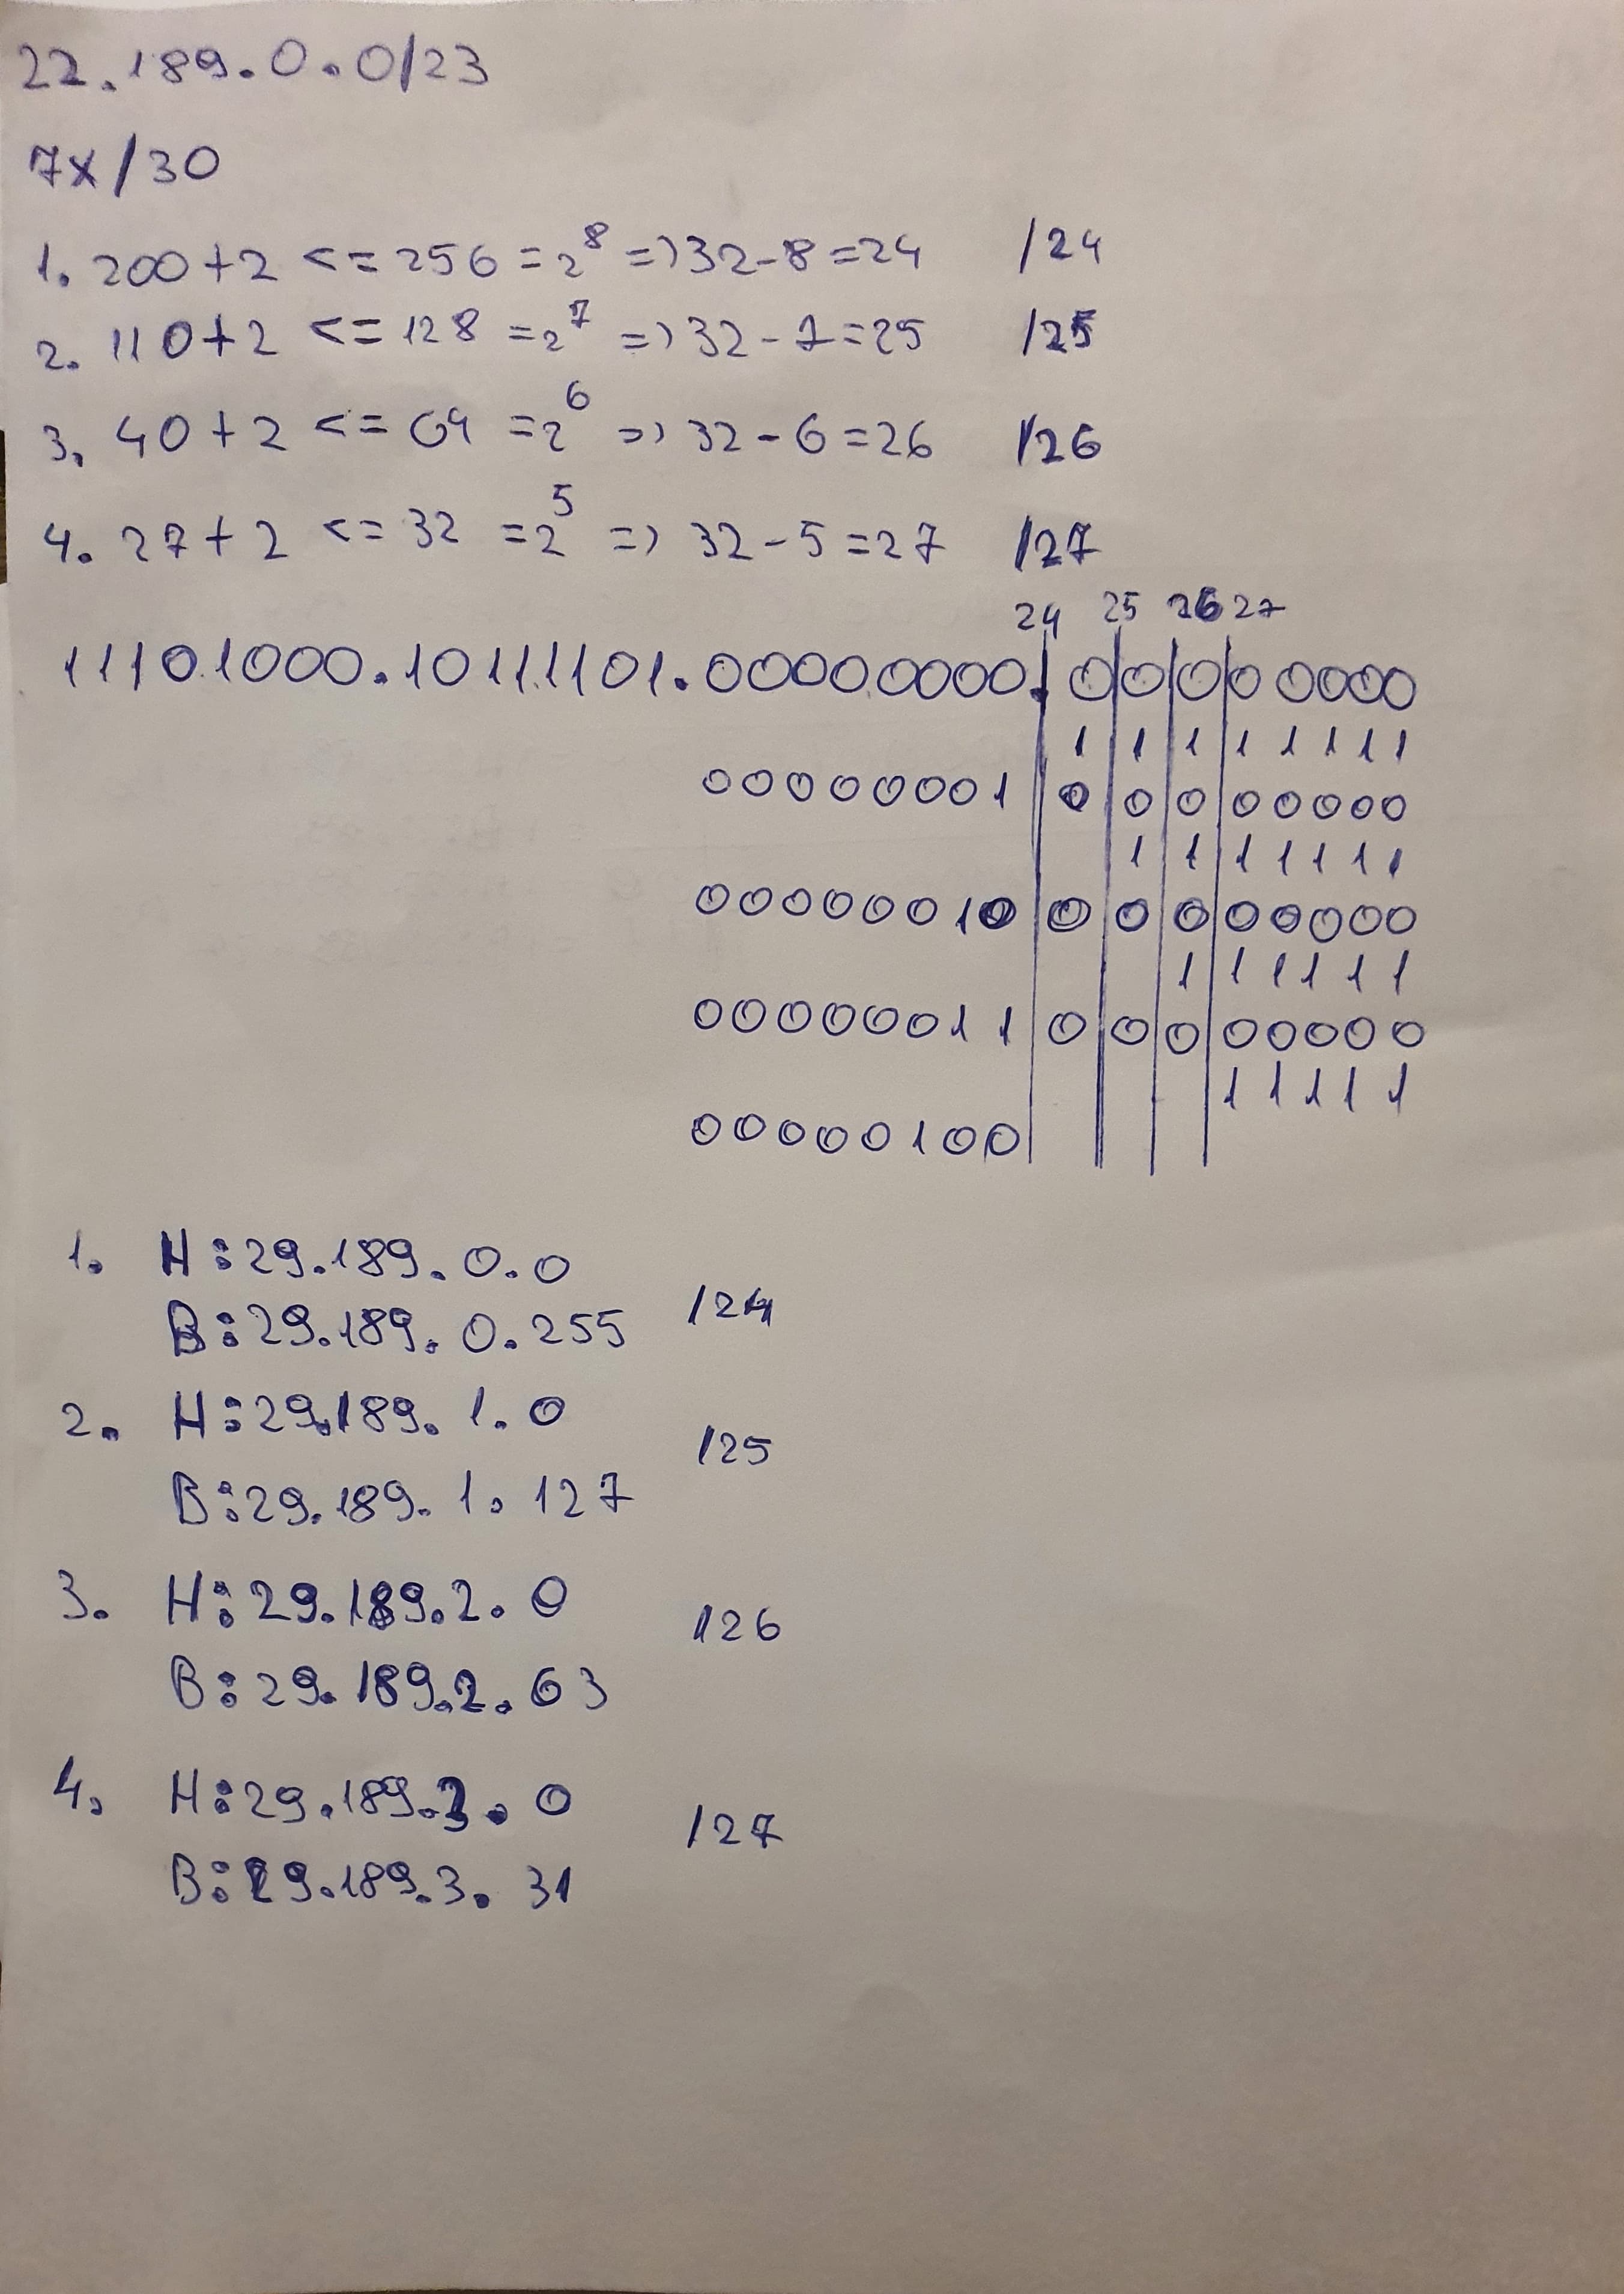 22.189.0.0/23
7x/30
1. 200+2 <= 256 = 2^8 => 32-8=24 /24
2. 110+2 <= 128 = 2^7 => 32-7=25 /25
3. 40+2 <= 64 = 2^6 => 32-6=26 /26
4. 27+2 <= 32 = 2^5 => 32-5=27 /27
24 25 26 27
11101000.10111101.00000000.|0|0|0|00000
1 1 1 1 1 1 1 1
00000001|0|0|0|00000
1 1 1 1 1 1 1
00000010|0|0|0|00000
1 1 1 1 1 1
00000011|0|0|0|00000
1 1 1 1 1
00000100
1. H:29.189.0.0
/24
B:29.189.0.255
2. H:29.189.1.0
/25
B:29.189.1.127
3. H:29.189.2.0
/26
B:29.189.2.63
4. H:29.189.3.0
/27
B:29.189.3.31